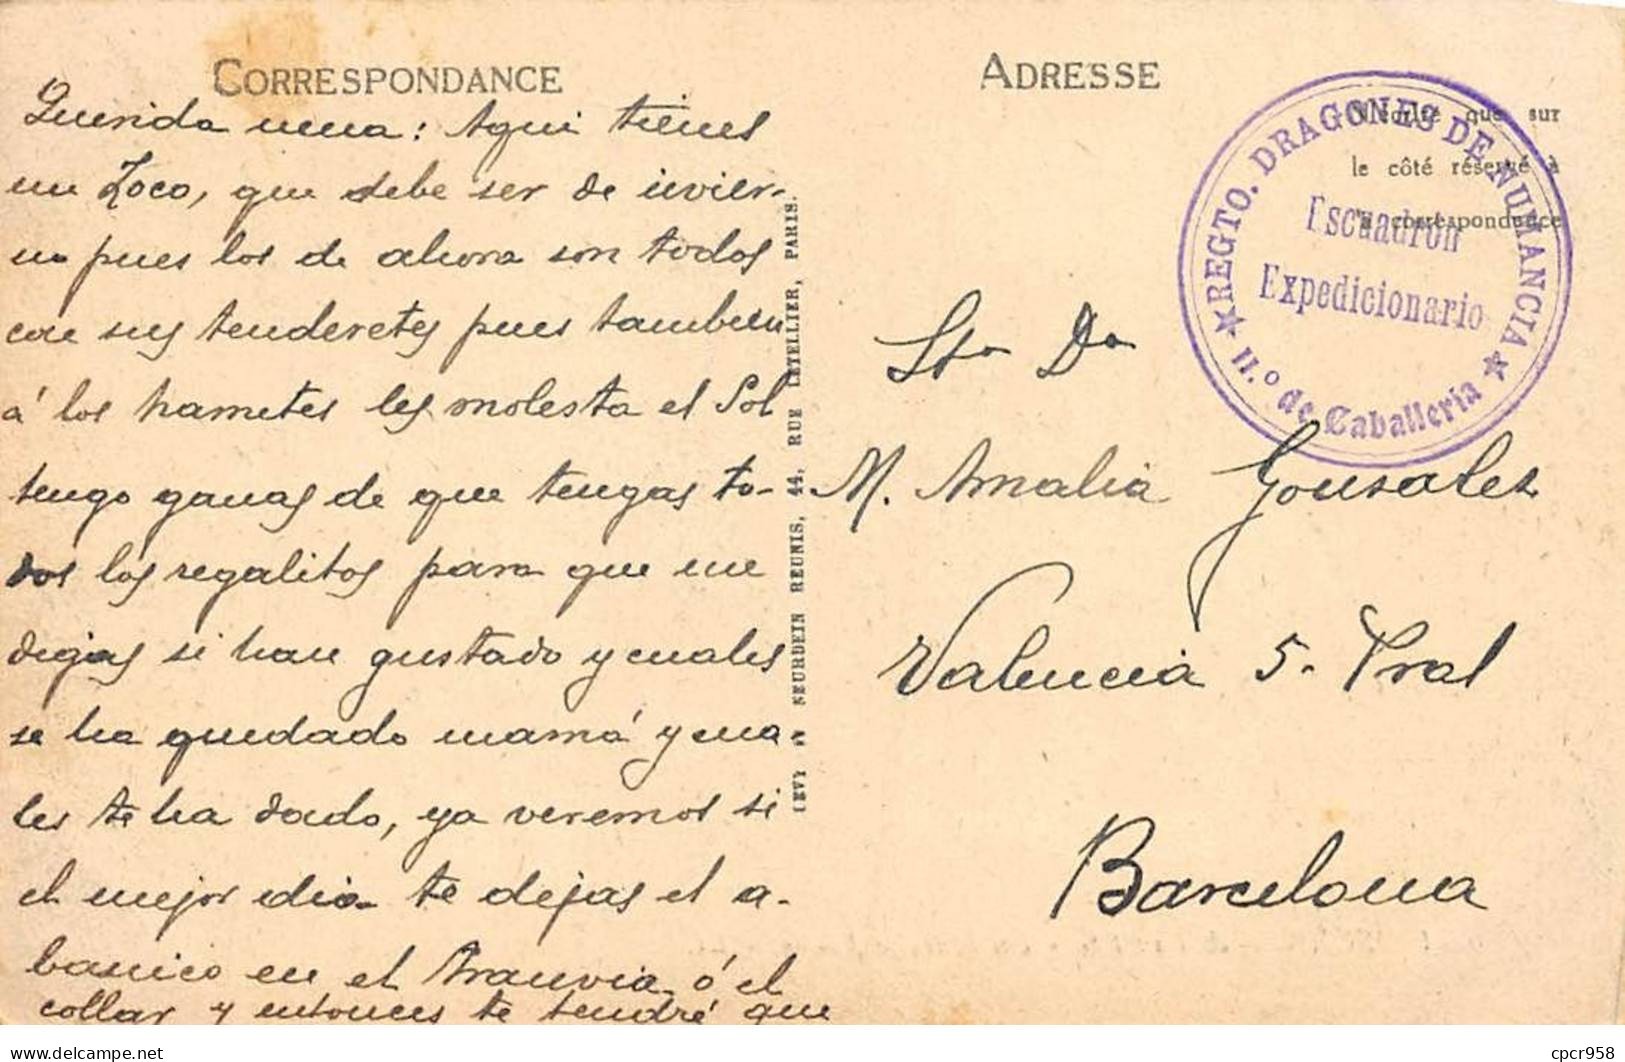 CORRESPONDANCE
Querida nena: Aqui tienes
un Zoco, que debe ser de invier-
no pues los de ahora son todos
con sus tenderetes pues tambien
á los hametes les molesta el Sol
tengo ganas de que tengas to-
dos los regalitos para que me
digas si han gustado y cuales
se ha quedado mamá y cua-
les te ha dado, ya veremos si
el mejor dia te dejas el a-
banico en el tranvia ó el
collar y entonces te tendré que
LEVY & NEURDEIN REUNIS, 44, RUE LETELLIER, PARIS.
ADRESSE
N'écrire que sur
le côté réservé à
la correspondance
★ REGTO. DRAGONES DE NUMANCIA ★
11.º de Caballería
Escuadrón
Expedicionario
Sta Da
M. Amalia Gonsales
Valencia 5- Pral
Barcelona
delcampe.net
cpcr958